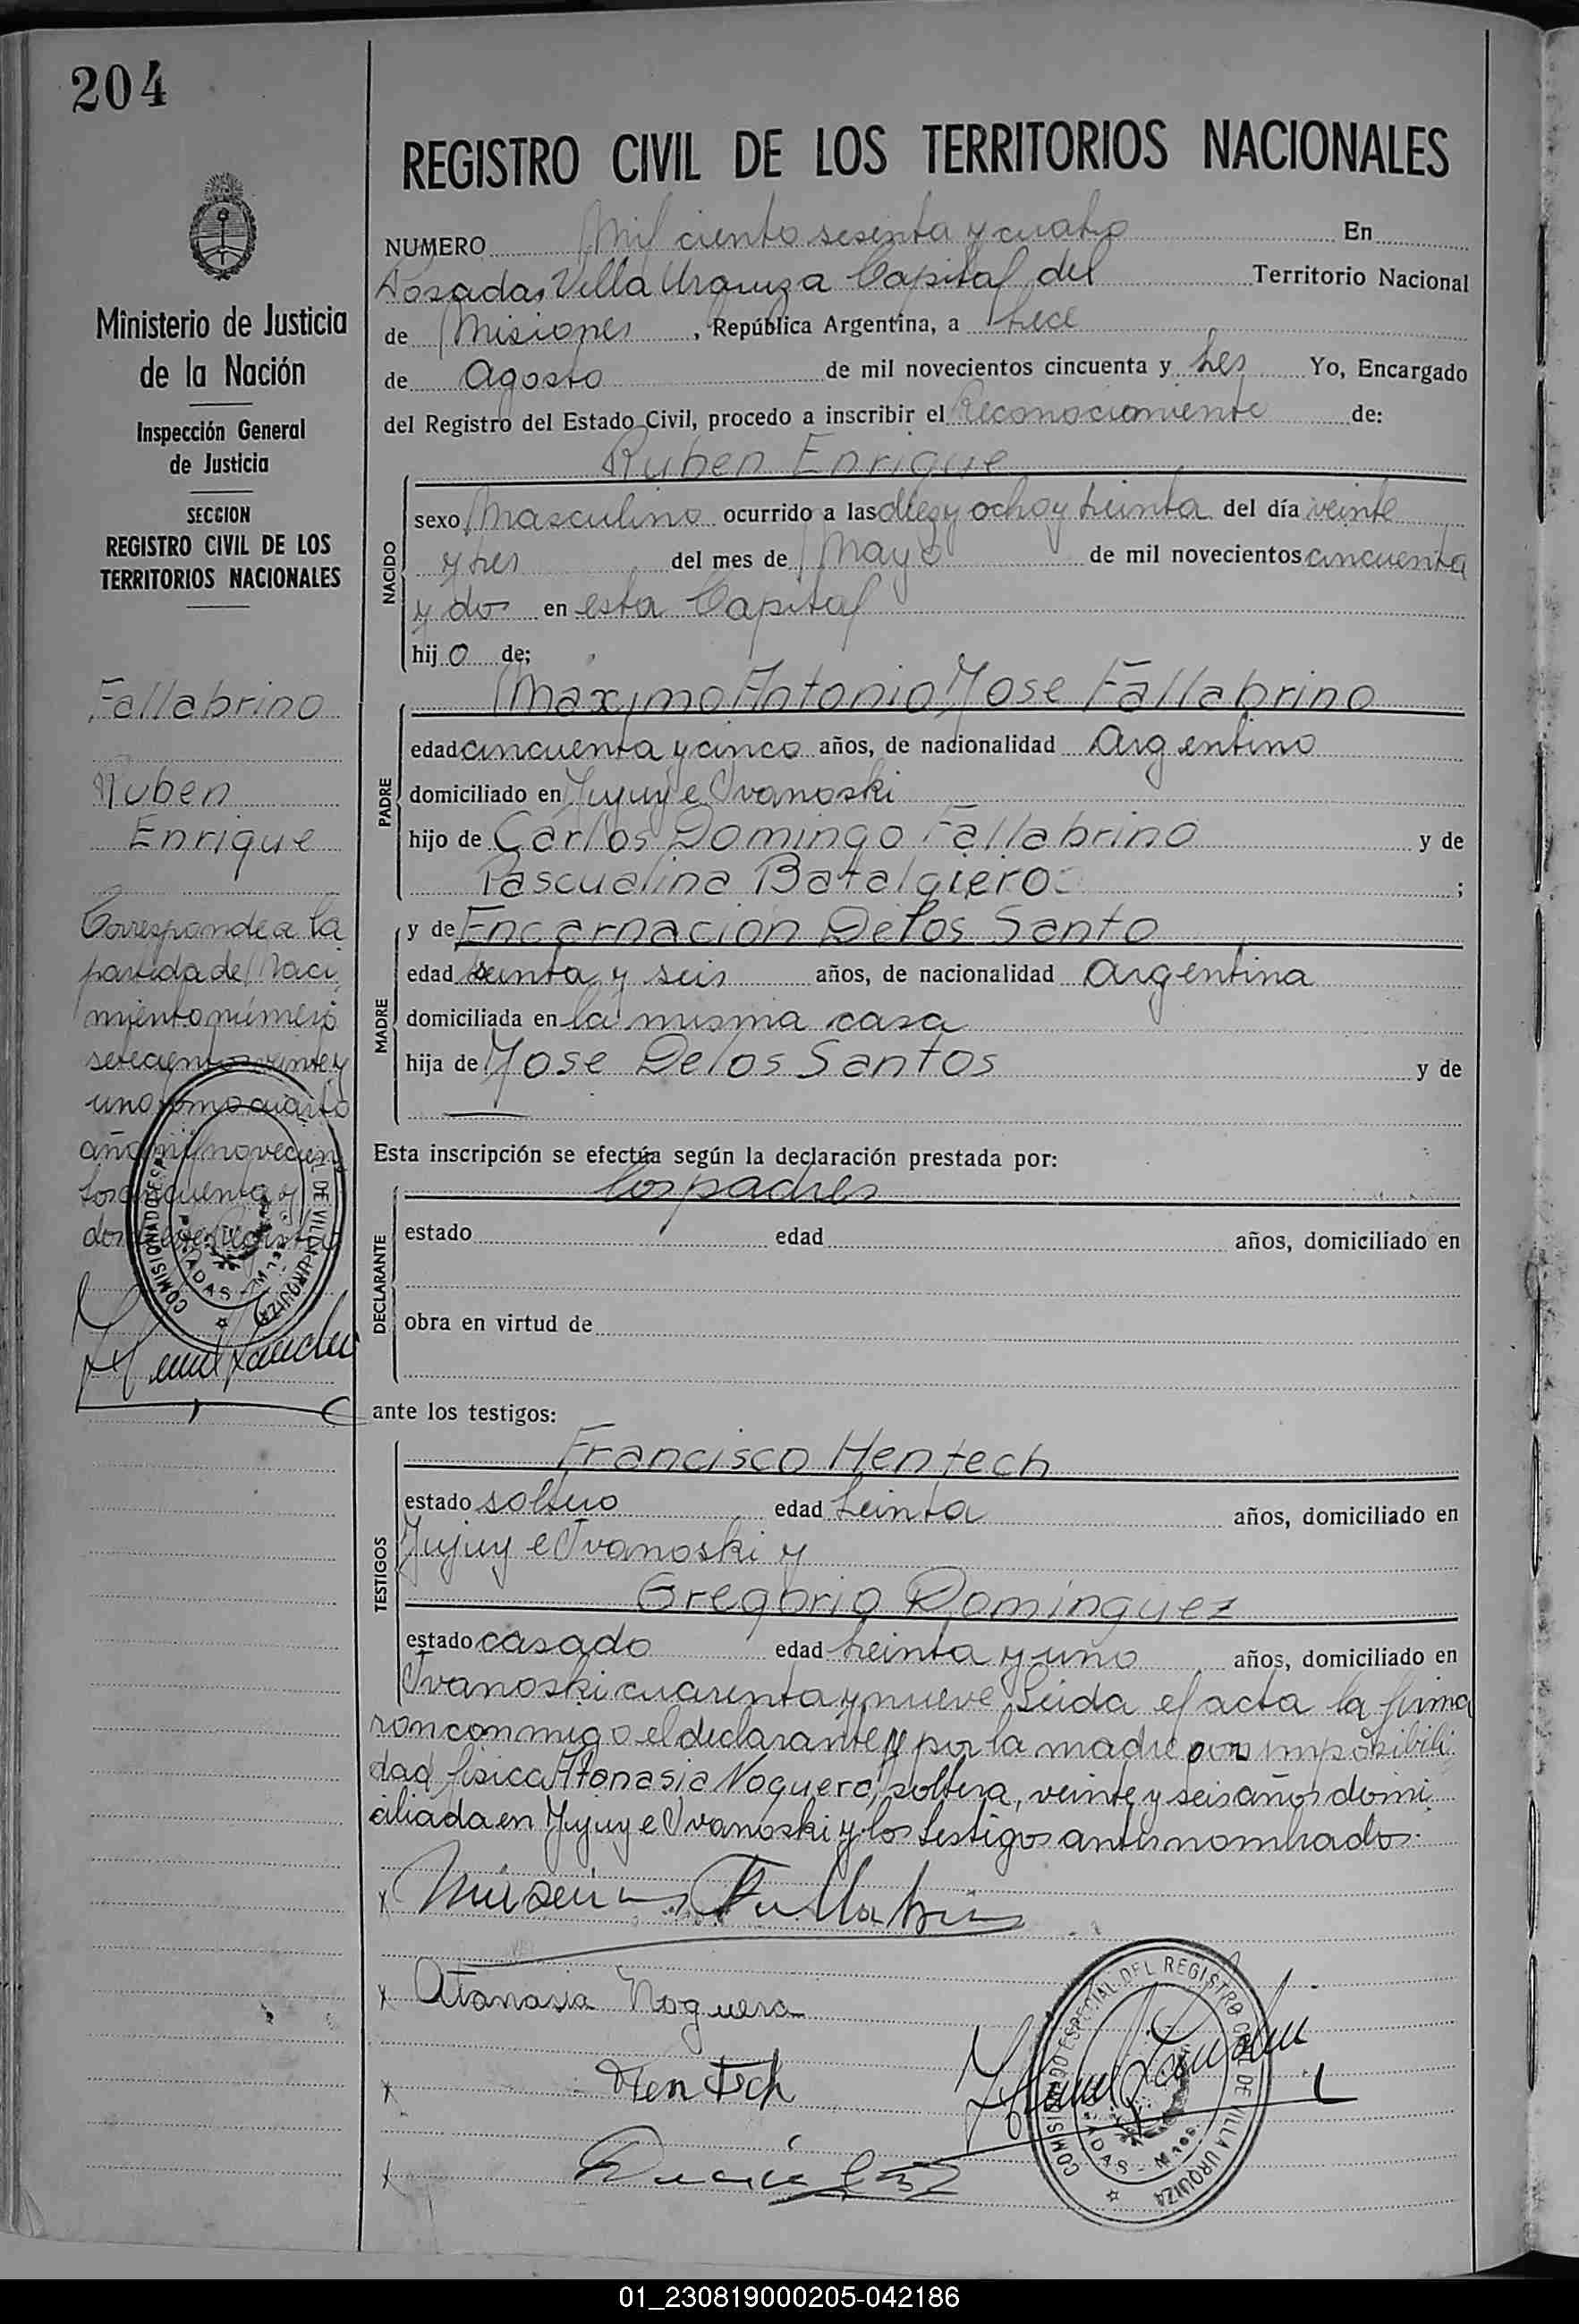 204
REGISTRO CIVIL DE LOS TERRITORIOS NACIONALES
NUMERO Mil ciento sesenta y cuatro En
Posadas, Villa Urquiza Capital del Territorio Nacional
de Misiones, República Argentina, a trece
de Agosto de mil novecientos cincuenta y tres Yo, Encargado
del Registro del Estado Civil, procedo a inscribir el Reconocimiento de:
Ruben Enrique
NACIDO
sexo Masculino ocurrido a las diez y ocho y treinta del día veinte
y tres del mes de Mayo de mil novecientos cincuenta
y dos en esta Capital
hijo de;
PADRE
Maximo Antonio Jose Fallabrino
edad cincuenta y cinco años, de nacionalidad Argentino
domiciliado en Jujuy e Ivanoski
hijo de Carlos Domingo Fallabrino y de
Pascualina Batalgiero ;
MADRE
y de Encarnación Delos Santo
edad treinta y seis años, de nacionalidad Argentina
domiciliada en la misma casa
hija de Jose Delos Santos y de
Esta inscripción se efectúa según la declaración prestada por:
DECLARANTE
los padres
estado edad años, domiciliado en
obra en virtud de
ante los testigos:
TESTIGOS
Francisco Hentech
estado soltero edad treinta años, domiciliado en
Jujuy e Ivanoski y
Gregorio Dominguez
estado casado edad treinta y uno años, domiciliado en
Ivanoski cuarenta y nueve Leida el acta la firma
ron conmigo el declarante y por la madre por imposibili
dad fisica Atanasia Noguera, soltera, veinte y seis años domi
ciliada en Jujuy e Ivanoski y los testigos antes nombrados.
x Fallabrino
x Atanasia Noguera
x Hentsch
x
COMISIONADO ESPECIAL DEL REGISTRO CIVIL DE VILLA URQUIZA
POSADAS - M
Ministerio de Justicia
de la Nación
Inspección General
de Justicia
SECCION
REGISTRO CIVIL DE LOS
TERRITORIOS NACIONALES
Fallabrino
Ruben
Enrique
Corresponde a la
partida de Naci
miento número
setecientos veinte y
uno tomo cuarto
año mil novecien
tos cincuenta y
dos de este Registro
COMISIONADO ESP DE VILLA URQUIZA
POSADAS - M
01_230819000205-042186